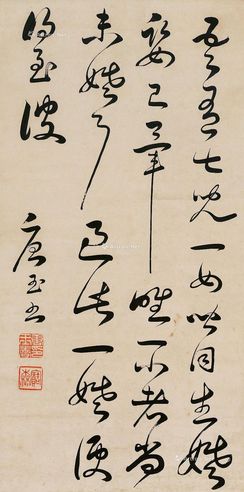 吾有七兒一女皆同生婚
娶已畢唯一小者尚
未婚耳過此一婚便
得至彼
唐玉書